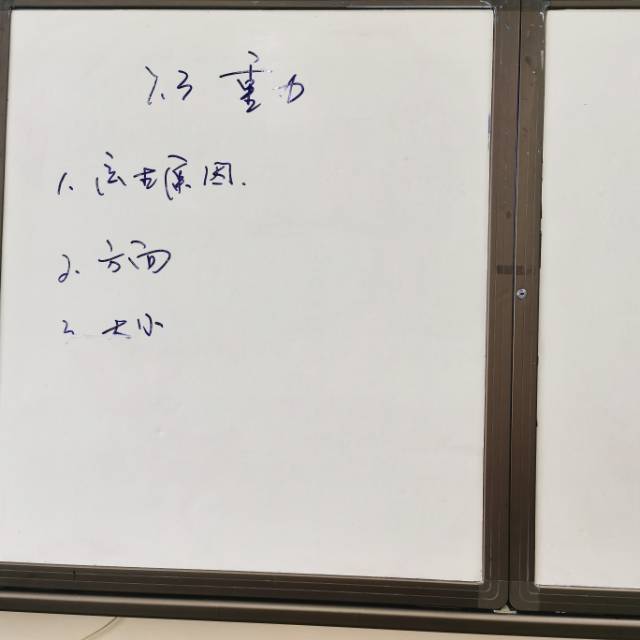 7.3 重力
1. 产生原因.
2. 方向
3. 大小